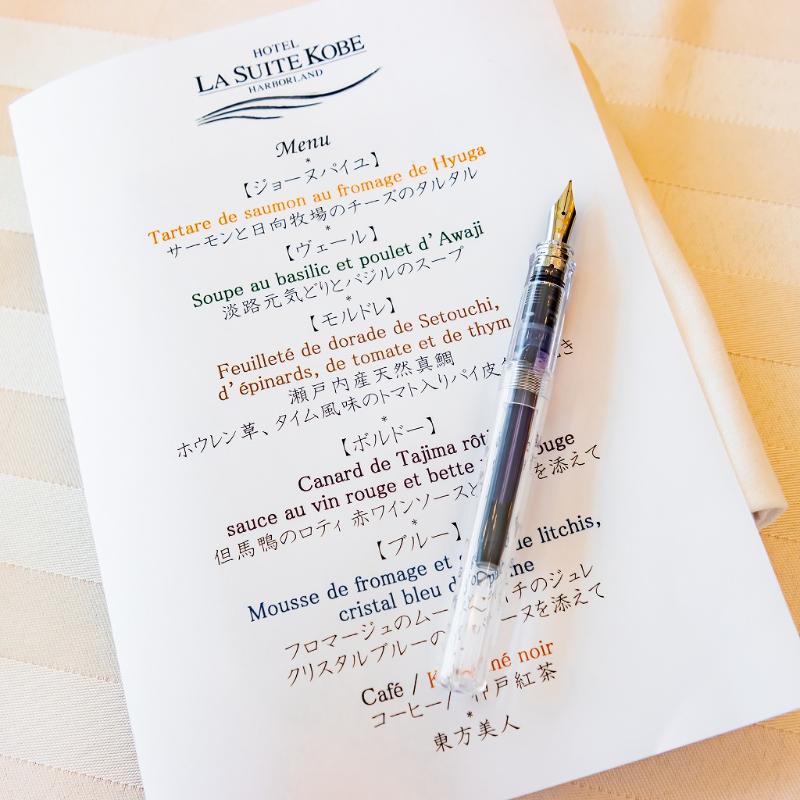 HOTEL
LA SUITE KOBE
HARBORLAND
Menu
*
【ジョーヌパイユ】
Tartare de saumon au fromage de Hyuga
サーモンと日向牧場のチーズのタルタル
*
【ヴェール】
Soupe au basilic et poulet d' Awaji
淡路元気どりとバジルのスープ
*
【モルドレ】
Feuilleté de dorade de Setouchi,
d' épinards, de tomate et de thym
瀬戸内産天然真鯛
ホウレン草、タイム風味のトマト入りパイ皮
*
【ボルドー】
Canard de Tajima rôti
sauce au vin rouge et bette rouge
但馬鴨のロティ 赤ワインソースと を添えて
*
【ブルー】
Mousse de fromage et litchis,
cristal bleu
フロマージュのムース のジュレ
クリスタルブルーの を添えて
Café / noir
コーヒー/ 神戸紅茶
*
東方美人